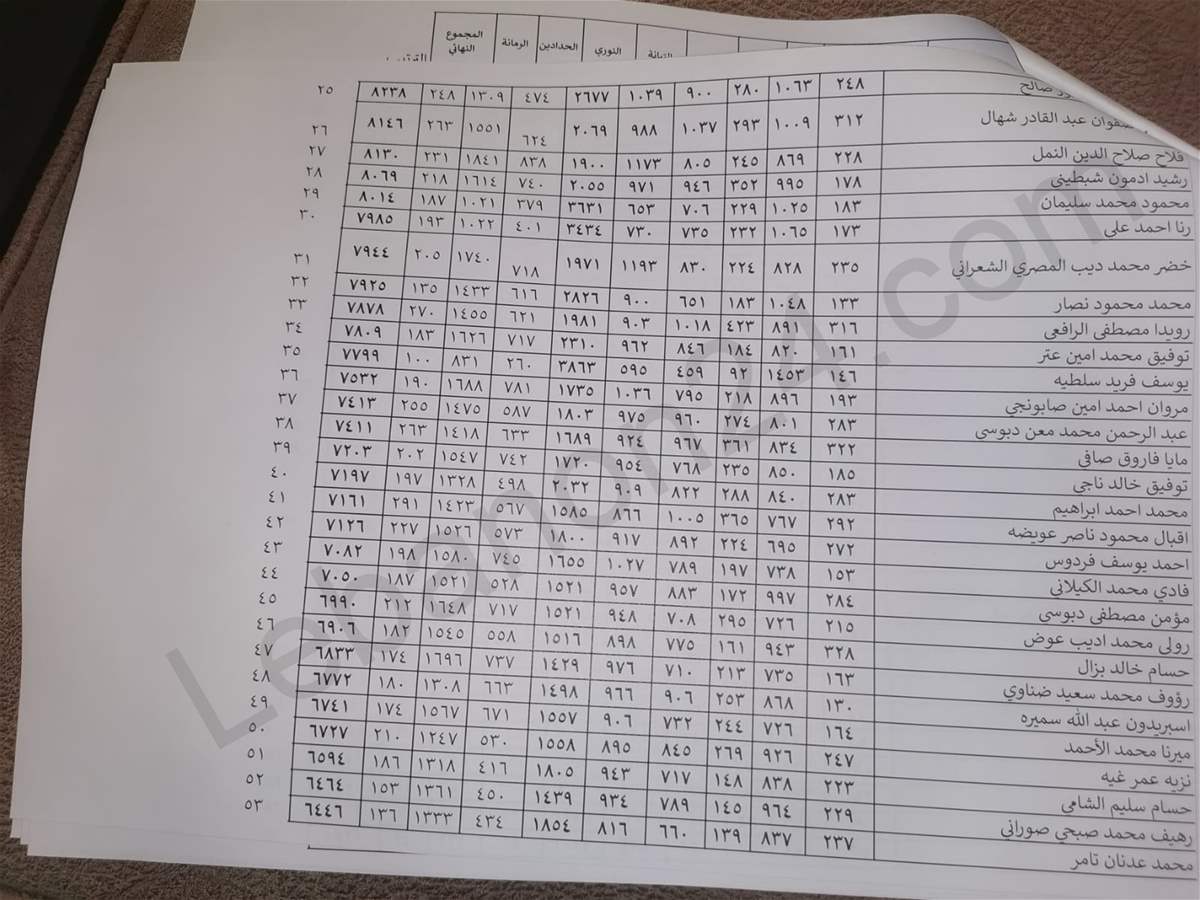 الزبانة النوري الحدادين الرمانة المجموع النهائي
صالح ٢٤٨ ١٠٦٣ ٢٨٠ ٩٠٠ ١٠٣٩ ٢٦٧٧ ٤٧٤ ١٣٠٩ ٢٤٨ ٨٢٣٨ ٢٥
صفوان عبد القادر شهال ٣١٢ ١٠٠٩ ٢٩٣ ١٠٣٧ ٩٨٨ ٢٠٦٩ ٦٢٤ ١٥٥١ ٢٦٣ ٨١٤٦ ٢٦
فلاح صلاح الدين النمل ٢٢٨ ٨٦٩ ٢٤٥ ٨٠٥ ١١٧٣ ١٩٠٠ ٨٣٨ ١٨٤١ ٢٣١ ٨١٣٠ ٢٧
رشيد ادمون شبطيني ١٧٨ ٩٩٥ ٣٥٢ ٩٤٦ ٩٧١ ٢٠٥٥ ٧٤٠ ١٦١٤ ٢١٨ ٨٠٦٩ ٢٨
محمود محمد سليمان ١٨٣ ١٠٢٥ ٢٢٩ ٧٠٦ ٦٥٣ ٣٦٣١ ٣٧٩ ١٠٢١ ١٨٧ ٨٠١٤ ٢٩
رنا احمد علي ١٧٣ ١٠٦٥ ٢٣٢ ٧٣٥ ٧٣٠ ٣٤٣٤ ٤٠١ ١٠٢٢ ١٩٣ ٧٩٨٥ ٣٠
خضر محمد ديب المصري الشعراني ٢٣٥ ٨٢٨ ٢٢٤ ٨٣٠ ١١٩٣ ١٩٧١ ٧١٨ ١٧٤٠ ٢٠٥ ٧٩٤٤ ٣١
محمد محمود نصار ١٣٣ ١٠٤٨ ١٨٣ ٦٥١ ٩٠٠ ٢٨٢٦ ٦١٦ ١٤٣٣ ١٣٥ ٧٩٢٥ ٣٢
رويدا مصطفى الرافعي ٣١٦ ٨٩١ ٤٢٣ ١٠١٨ ٩٠٣ ١٩٨١ ٦٢١ ١٤٥٥ ٢٧٠ ٧٨٧٨ ٣٣
توفيق محمد امين عتر ١٦١ ٨٢٠ ١٨٤ ٨٤٦ ٩٦٢ ٢٣١٠ ٧١٧ ١٦٢٦ ١٨٣ ٧٨٠٩ ٣٤
يوسف فريد سلطيه ١٤٦ ١٤٥٣ ٩٢ ٤٥٩ ٥٩٥ ٣٨٦٣ ٢٦٠ ٨٣١ ١٠٠ ٧٧٩٩ ٣٥
مروان احمد امين صابونجي ١٩٣ ٨٩٦ ٢١٨ ٧٩٥ ١٠٣٦ ١٧٣٥ ٧٨١ ١٦٨٨ ١٩٠ ٧٥٣٢ ٣٦
عبد الرحمن محمد معن دبوسي ٢٨٣ ٨٠١ ٢٧٤ ٩٦٠ ٩٧٥ ١٨٠٣ ٥٨٧ ١٤٧٥ ٢٥٥ ٧٤١٣ ٣٧
مايا فاروق صافي ٣٢٢ ٨٣٤ ٣٦١ ٩٦٧ ٩٢٤ ١٦٨٩ ٦٣٣ ١٤١٨ ٢٦٣ ٧٤١١ ٣٨
توفيق خالد ناجي ١٨٥ ٨٥٠ ٢٣٥ ٧٦٨ ٩٥٤ ١٧٢٠ ٧٤٢ ١٥٤٧ ٢٠٢ ٧٢٠٣ ٣٩
محمد احمد ابراهيم ٢٨٣ ٨٤٠ ٢٨٨ ٨٢٢ ٩٠٩ ٢٠٣٢ ٤٩٨ ١٣٢٨ ١٩٧ ٧١٩٧ ٤٠
اقبال محمود ناصر عويضه ٢٩٢ ٧٦٧ ٣٦٥ ١٠٠٥ ٨٦٦ ١٥٨٥ ٥٦٧ ١٤٢٣ ٢٩١ ٧١٦١ ٤١
احمد يوسف فردوس ٢٧٢ ٦٩٥ ٢٢٤ ٨٩٢ ٩١٧ ١٨٠٠ ٥٧٣ ١٥٢٦ ٢٢٧ ٧١٢٦ ٤٢
فادي محمد الكيلاني ١٥٣ ٧٣٨ ١٩٧ ٧٨٩ ١٠٢٧ ١٦٥٥ ٧٤٥ ١٥٨٠ ١٩٨ ٧٠٨٢ ٤٣
مؤمن مصطفى دبوسي ٢٨٤ ٩٩٧ ١٧٢ ٨٨٣ ٩٥٧ ١٥٢١ ٥٢٨ ١٥٢١ ١٨٧ ٧٠٥٠ ٤٤
رولي محمد اديب عوض ٢١٥ ٧٢٦ ٢٩٥ ٧٠٨ ٩٤٨ ١٥٢١ ٧١٧ ١٦٤٨ ٢١٢ ٦٩٩٠ ٤٥
حسام خالد بزال ٣٢٨ ٩٤٣ ١٦١ ٧٧٥ ٨٩٨ ١٥١٦ ٥٥٨ ١٥٤٥ ١٨٢ ٦٩٠٦ ٤٦
رؤوف محمد سعيد ضناوي ١٦٣ ٧٣٥ ٢١٣ ٧١٠ ٩٧٦ ١٤٢٩ ٧٣٧ ١٦٩٦ ١٧٤ ٦٨٣٣ ٤٧
اسبريدون عبد الله سميره ١٣٠ ٨٦٨ ٢٥٣ ٩٠٦ ٩٦٦ ١٤٩٨ ٦٦٣ ١٣٠٨ ١٨٠ ٦٧٧٢ ٤٨
ميرنا محمد الأحمد ١٦٤ ٧٢٦ ٢٤٤ ٧٣٢ ٩٠٦ ١٥٥٧ ٦٧١ ١٥٦٧ ١٧٤ ٦٧٤١ ٤٩
نزيه عمر غيه ٢٤٧ ٩٢٦ ٢٦٩ ٨٤٥ ٨٩٥ ١٥٥٨ ٥٣٠ ١٢٤٧ ٢١٠ ٦٧٢٧ ٥٠
حسام سليم الشامي ٢٢٣ ٨٣٨ ١٤٨ ٧١٧ ٩٤٣ ١٨٠٥ ٤١٦ ١٣١٨ ١٨٦ ٦٥٩٤ ٥١
رهيف محمد صبحي صوراني ٢٢٩ ٩٦٤ ١٤٥ ٧٨� ٩٣٤ ١٤٣٩ ٤٥٠ ١٣٦١ ١٥٣ ٦٤٦٤ ٥٢
محمد عدنان تامر ٢٣٧ ٨٣٧ ١٣٩ ٦٦٠ ٨١٦ ١٨٥٤ ٤٣٤ ١٣٣٣ ١٣٦ ٦٤٤٦ ٥٣
Lebanon24.com